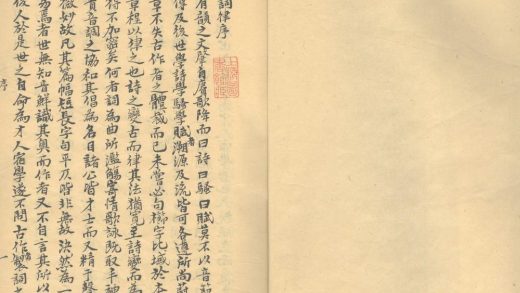 詞律序
有韻之文肇自賡歌降而曰詩曰騷曰賦莫不以音節
傳及後世學詩學騷學賦者溯源及流皆可各遵所尚
章不失古作者之體裁而已未嘗必句櫛字比域於本
章程以律之也詩之變古而律其法猶寬至詩變而為
得不加密矣何者詞為曲所濫觴寄情歌詠既取丰神
貴音調之協和其倡為名目諸公皆才士而又精于聲
微妙故凡其篇幅短長字句平仄皆非無故決然為一
易焉者世無知音鮮識其奧而作者又不自言其所以
後人於是世之自命為才人宿學遂不問古作者製詞
序
一